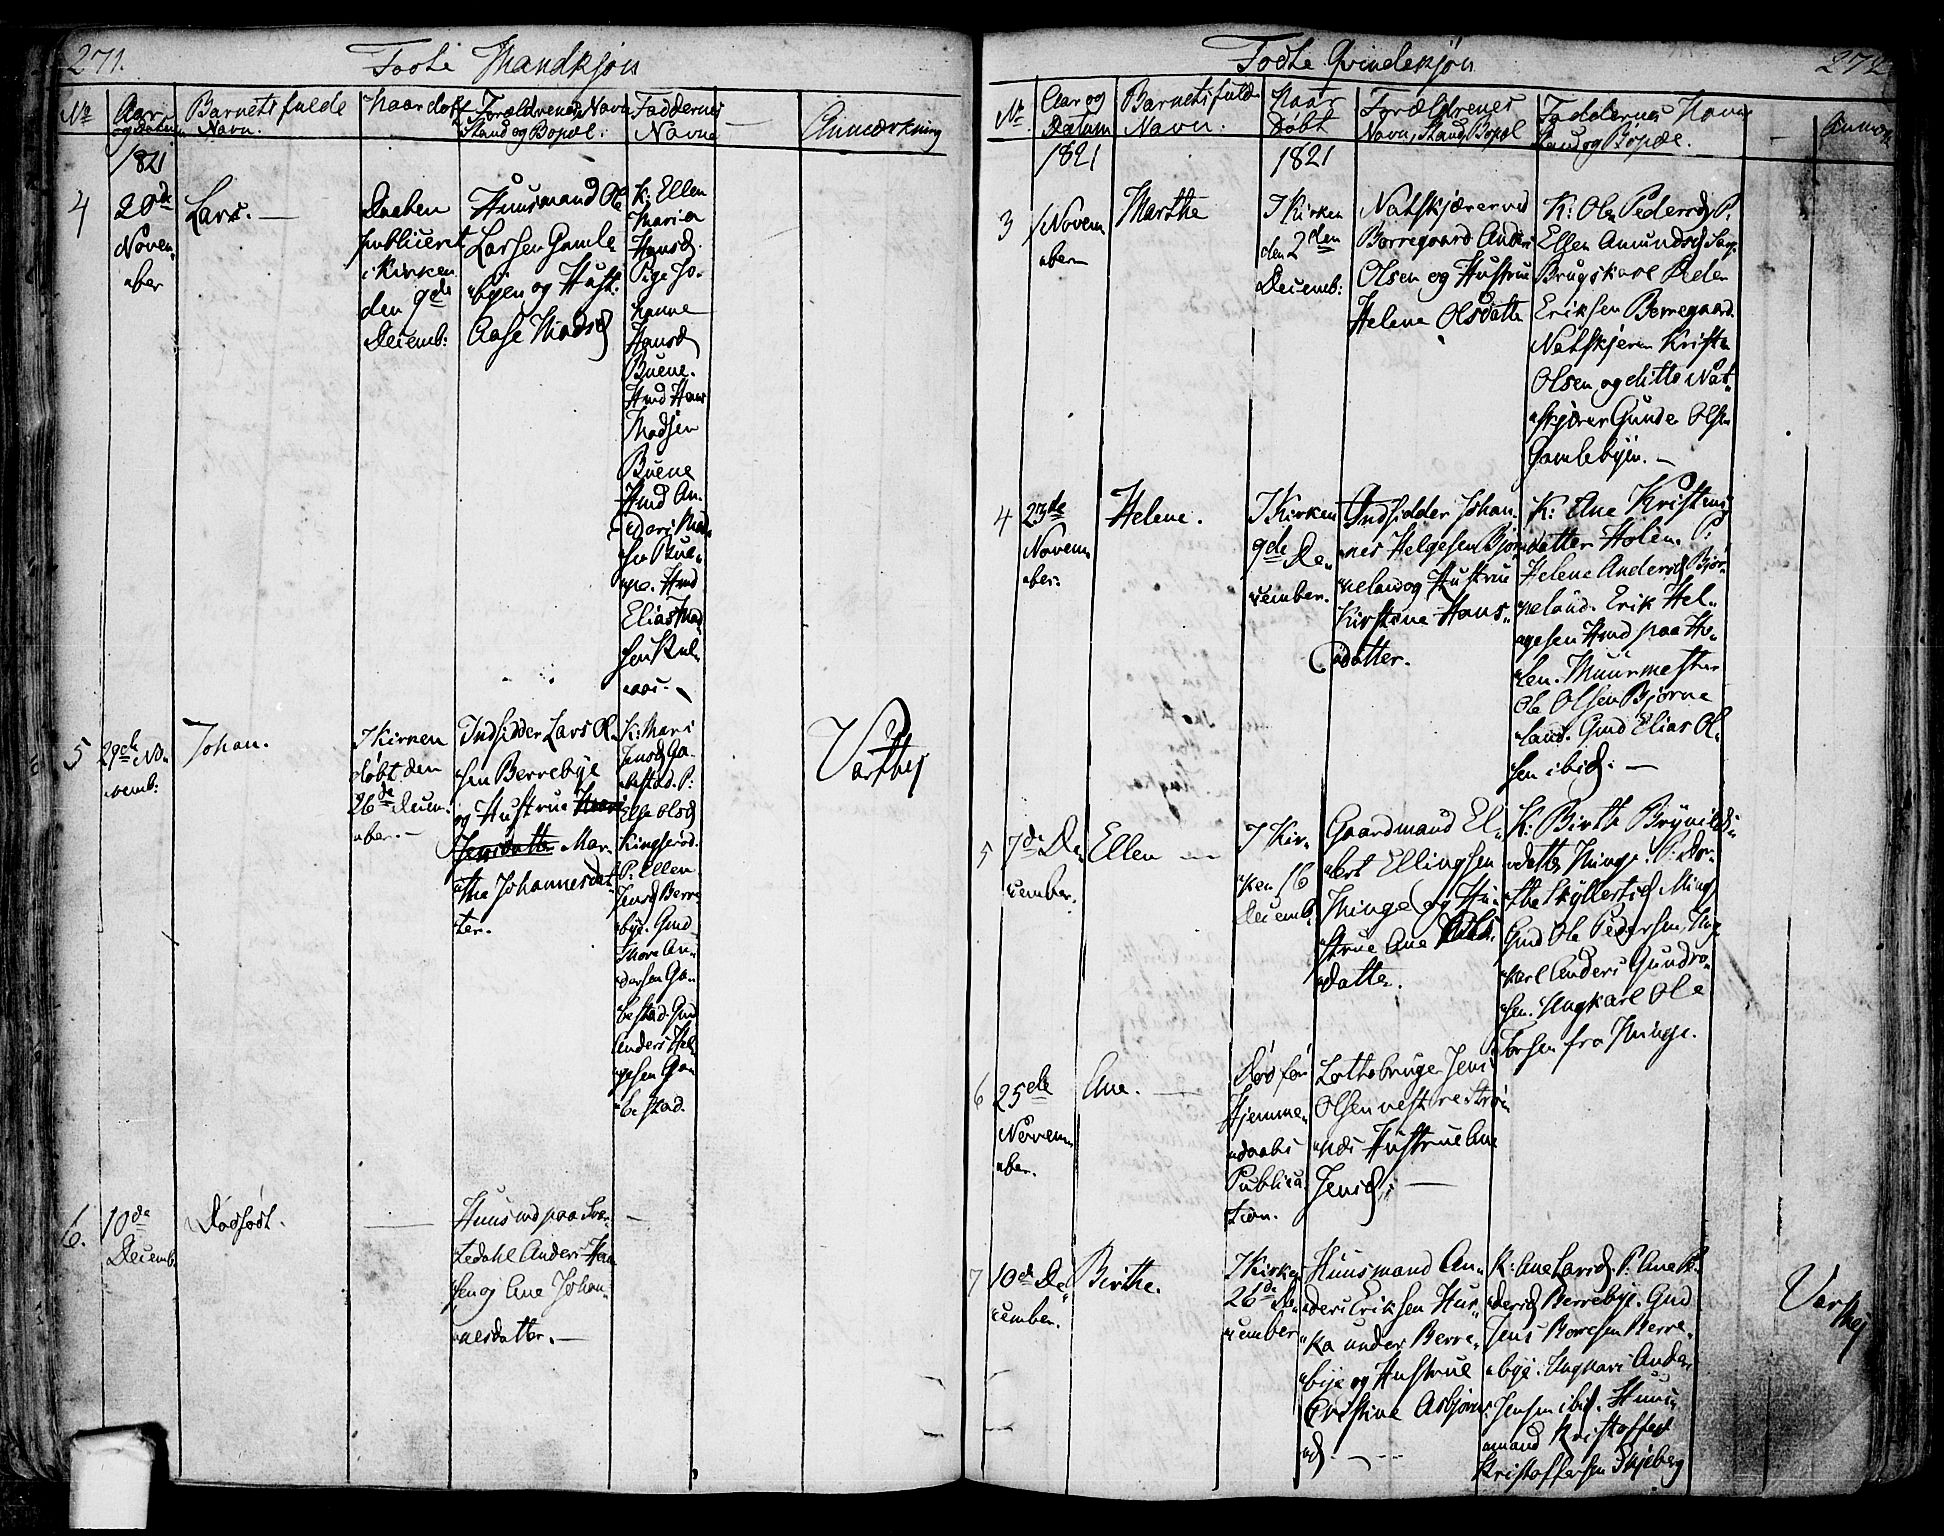 271.
Födte Mandkjön
No
Aar og Datum
Barnets fulde Navn.
Naar döbt
Forældrenes Navn Stand og Bopæl:
Faddernes Navne
Anmærkning
1821
4
20de
Novem-
ber
Lars. —
Daaben
publiceret
i Kirken
den 9de
Decemb:
Huusmand Ole
Larsen Gamle
byen og Hust:
Aase Madsd
K: Ellen
Maria
Hansd
Pige Jo-
hanne
Hansd
Buene.
Hmd Hans
Madsen
Buene
Hmd An-
ders Mad-
sen Bue-
ne. Hmd
Elias Mad-
sen
5
29de No-
vemb:
Johan.
I Kirken
döbt den
26de Decem-
ber. —
Indsidder Lars Ol-
sen Berrebye
og Hustrue
Jensdatter Mar-
the Johannesdat-
ter.
K: Mari
Jensd Ga-
bestad. P:
Else Olsd
Kingseröd.
P: Ellen
Jensd Berre
bye. Gmd
Thore An-
dersen Ga-
bestad. Gmd
Anders Hel-
gesen Ga-
bestad.
Varthey
6.
10de
Decemb
Dödfödt.
—
Huusmd paa Sva-
tedahl Anders Han
sen og Ane Johan-
nesdatter. —
—
Födte Qvindekjön
272
No
Aar og Datum
Barnets fulde Navn.
Naar Döbt
Forældrenes Navn, Stand, Bopæl
Faddernes Navn Stand og Bopæl.
Anmærk
1821
1821
3
1 Novem
ber
Marthe
I Kirken
den 2den
Decemb:
Natskjærer ved
Borregaard Anders
Olsen og Hustrue
Helene Olsdatte
K: Ole Pedersd P.
Ellen Amundsd Sarp
Brugskarl Peder
Eriksen Borregaard.
Natskjerer Kriste
Olsen og ditto Nat-
skjærer Gunder Olsen
Gamlebyen. —
4
23de
Novem
ber.
Helene.
I Kirken
9de De-
cember.
Indsidder Johan-
nes Helgesen Bjør-
neland og Hustrue
Kirstine Hans-
datter.
K: Ane Kristens
datter Holen. P:
Helene Andersd Bjør-
neland. Erik Hel-
gesen Hmd paa Ho-
len. Muurmester
Ole Olsen Bjørne
land. Gmd Elias Ol-
sen ibid. —
5
7de De-
cember.
Ellen —
I Kir-
ken 16
Decemb.
Gaardmand El-
lert Ellingsen
Minge og Hu-
strue Ane
datter.
K: Birthe Brynilds-
datter Minge. P: Dor-
the Kyllertsd Minge
Gmd Ole Pedersen, Ung-
karl Anders Gundro-
sen. Ungkarl Ole
Torsen fra Minge.
6
25de
Novem
ber.
Ane. —
Död för
Hjemme-
daabs
Publica-
tion.
Lottebruger Jens
Olsen vestre Strön
næs Hustrue Ane
Jensd. —
7
10de De-
cember.
Birthe.
I Kirken
26de De-
cember
Huusmand An-
ders Eriksen Hus-
ka under Berre-
bye og Hustrue
Cristine Asbjörns
d. —
K: Ane Larsd. P: Ane P-
dersd Berrebye. Gmd
Jens Borresen Berre-
bye. Ungkarl Anders
Jensen ibid. Huus-
mand Kristoffer
Kristoffersen Skjeberg
Var
they